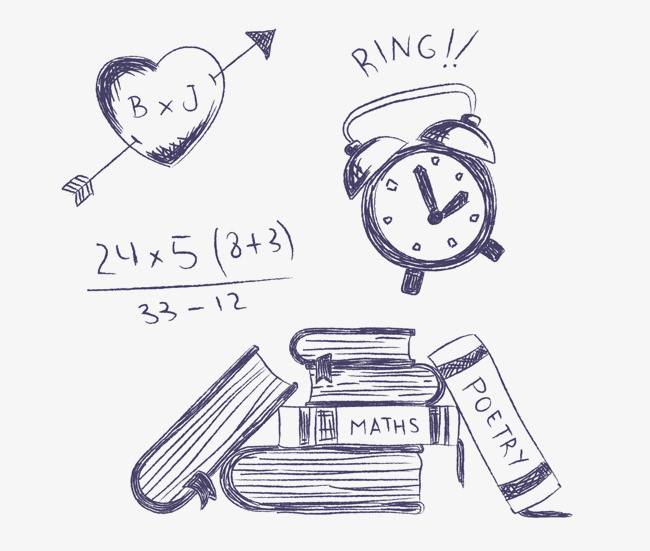 B x J
RING!!
24 x 5 (8+3)
33 - 12
MATHS
POETRY